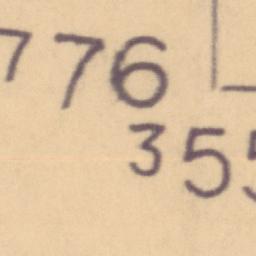 776
355